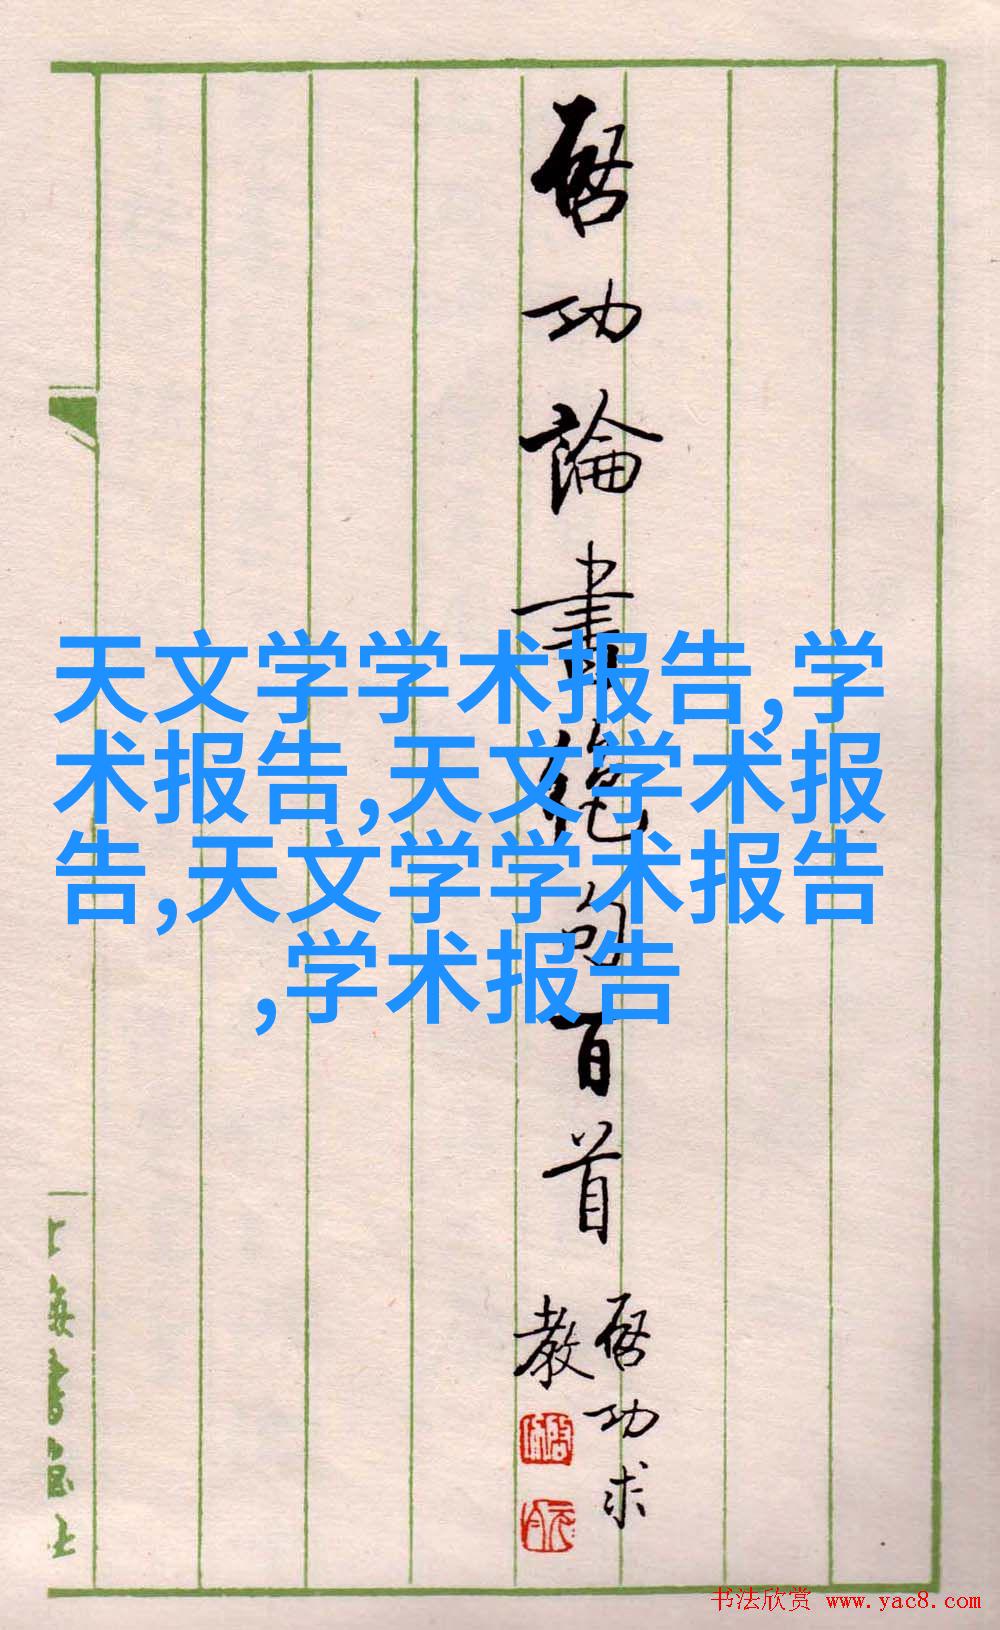 啟功論書絕句百首
啟功求
教
天文学学术报告,学
术报告,天文学术报
告,天文学学术报告
,学术报告
上海書画社
书法欣赏 www.yac8.com